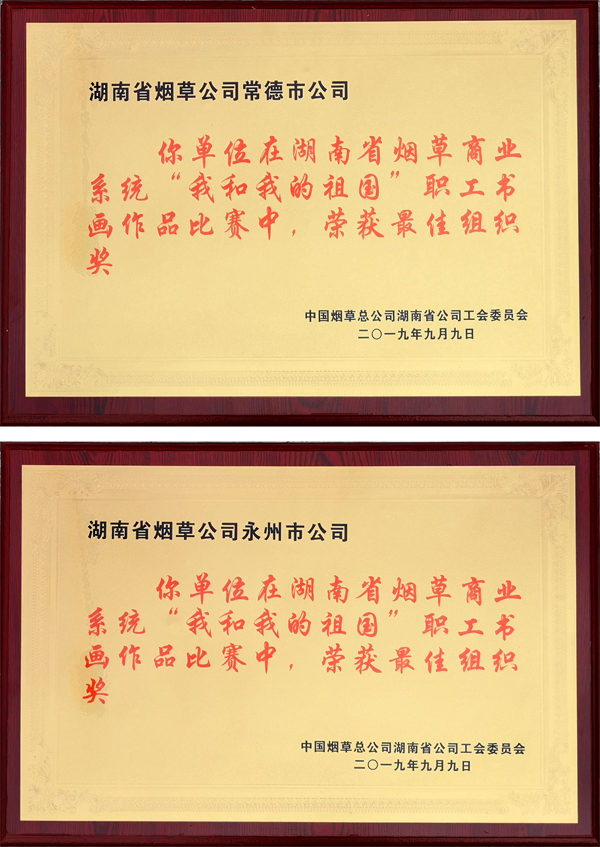 湖南省烟草公司常德市公司
你单位在湖南省烟草商业
系统“我和我的祖国”职工书
画作品比赛中，荣获最佳组织
奖
中国烟草总公司湖南省公司工会委员会
二〇一九年九月九日
湖南省烟草公司永州市公司
你单位在湖南省烟草商业
系统“我和我的祖国”职工书
画作品比赛中，荣获最佳组织
奖
中国烟草总公司湖南省公司工会委员会
二〇一九年九月九日